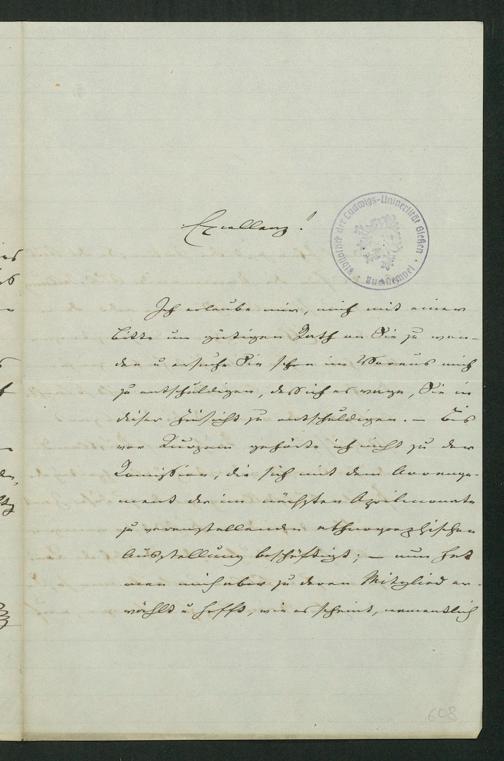 Excellenz!
Bibliothek der Ludwigs-Universität Gießen
Ich erlaube mir, mich mit einer
Bitte um gütigen Rath an Sie zu wen-
den u ersuche Sie schon im Voraus mich
zu entschuldigen, dass ich es wage, Sie in
dieser Hinsicht zu entschuldigen. – Bis
vor Kurzem gehörte ich nicht zu der
Comission, die sich mit dem Arrange-
ment der im nächsten Aprilmonate
zu veranstaltenden ethnographischen
Ausstellung beschäftigt; – nun hat
man mich aber zu deren Mitglied er-
wählt u hofft, wie es scheint, namentlich
608